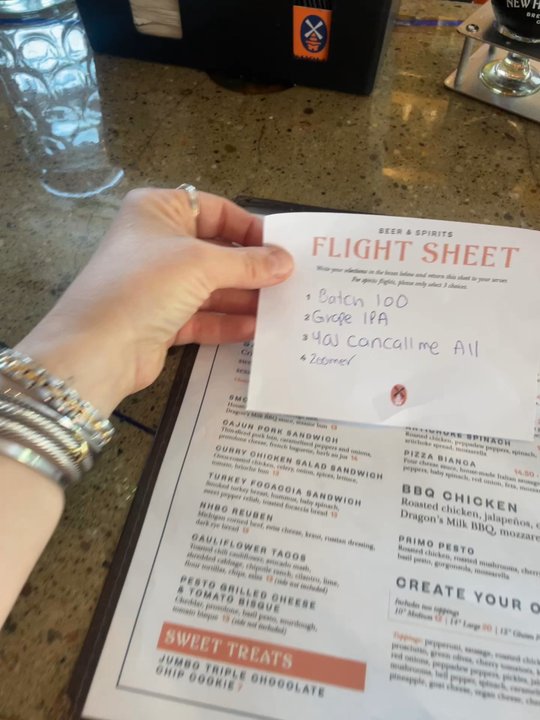 NEW H
BEER & SPIRITS
FLIGHT SHEET
Write your selections in the boxes below and return this sheet to your server.
For spirits flights, please only select 3 choices.
1 Batch 100
2 Grape IPA
3 You cancallme All
4 Zoomer
Dragon's Milk BBQ sauce,
CAJUN PORK SANDWICH
Thin-sliced pork loin, caramelized peppers and onions,
provolone cheese, french baguette, herb au jus 14
CURRY CHICKEN SALAD SANDWICH
Roasted chicken, celery, onion, spices, lettuce,
tomato, brioche bun 13
TURKEY FOCACCIA SANDWICH
Smoked turkey breast, hummus, baby spinach,
sweet pepper relish, toasted focaccia bread 13
NHBC REUBEN
Michigan corned beef, swiss cheese, kraut, russian dressing,
dark rye bread
CAULIFLOWER TACOS
Toasted chili cauliflower, avocado mash,
shredded cabbage, chipotle ranch, cilantro, lime,
flour tortillas, chips, salsa 13 (side not included)
PESTO GRILLED CHEESE
& TOMATO BISQUE
Cheddar, provolone, basil pesto, sourdough,
tomato bisque 13 (side not included)
SWEET TREATS
JUMBO TRIPLE CHOCOLATE
CHIP COOKIE 7
ARTICHOKE SPINACH
Roasted chicken, peppadew peppers, spinach,
artichoke spread, mozzarella
PIZZA BIANCA 14.50
Four cheese sauce, house-made Italian sausage
peppers, baby spinach, red onion, feta,
BBQ CHICKEN
Roasted chicken, jalapeños, c
Dragon's Milk BBQ, mozzare
PRIMO PESTO
Roasted chicken, roasted mushrooms, cherry
basil pesto, gorgonzola, mozzarella
CREATE YOUR O
Includes two toppings
10" Medium 15 | 14" Large 20 | 12" Gluten F
Toppings: pepperoni, sausage, roasted chick
prosciutto, green olives, cherry tomatoes,
red onions, peppadew peppers, pickles,
mushrooms, bell pepper, spinach, caramel
pineapple, goat cheese, vegan cheese,